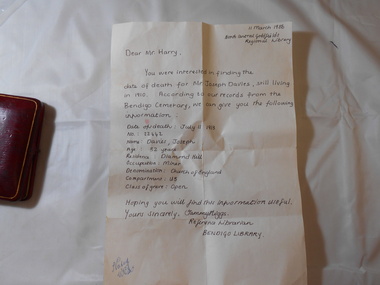 11 March 1988
North Central Goldfields
Regional Library
Dear Mr Harry,
You were interested in finding the
date of death for Mr Joseph Davies, still living
in 1910. According to our records from the
Bendigo Cemetery, we can give you the following
information:
Date of death: July 11
No.:
Name: Davies, Joseph
Age: years
Residence: Diamond Hill
Occupation: Miner
Denomination: Church of England
Compartment:
Class of grave: Open
Hoping you will find this information useful.
Yours sincerely,
Reference Librarian
BENDIGO LIBRARY.